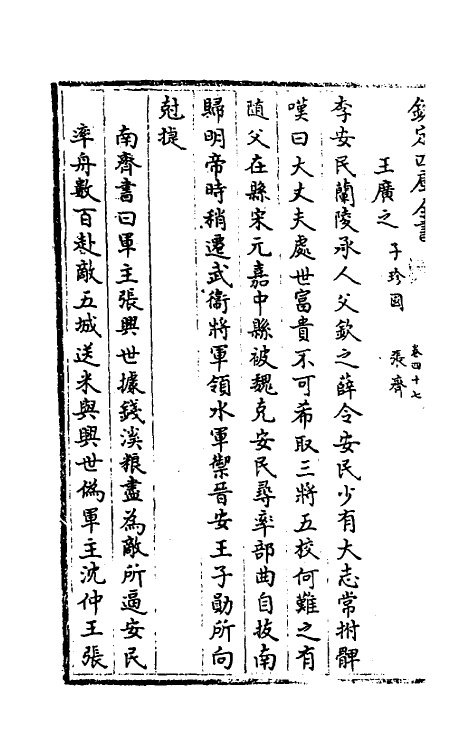 欽定四庫全書
卷四十七
王廣之 子珍國 張齊
李安民蘭陵承人父欽之薛令安民少有大志常拊髀
嘆曰大丈夫處世富貴不可希取三將五校何難之有
隨父在縣宋元嘉中縣被魏克安民尋率部曲自拔南
歸明帝時稍遷武衞將軍領水軍禦晉安王子勛所向
尅捷
南齊書曰軍主張興世據錢溪粮盡為敵所逼安民
率舟數百赴敵五城送米與興世偽軍主沈仲王張